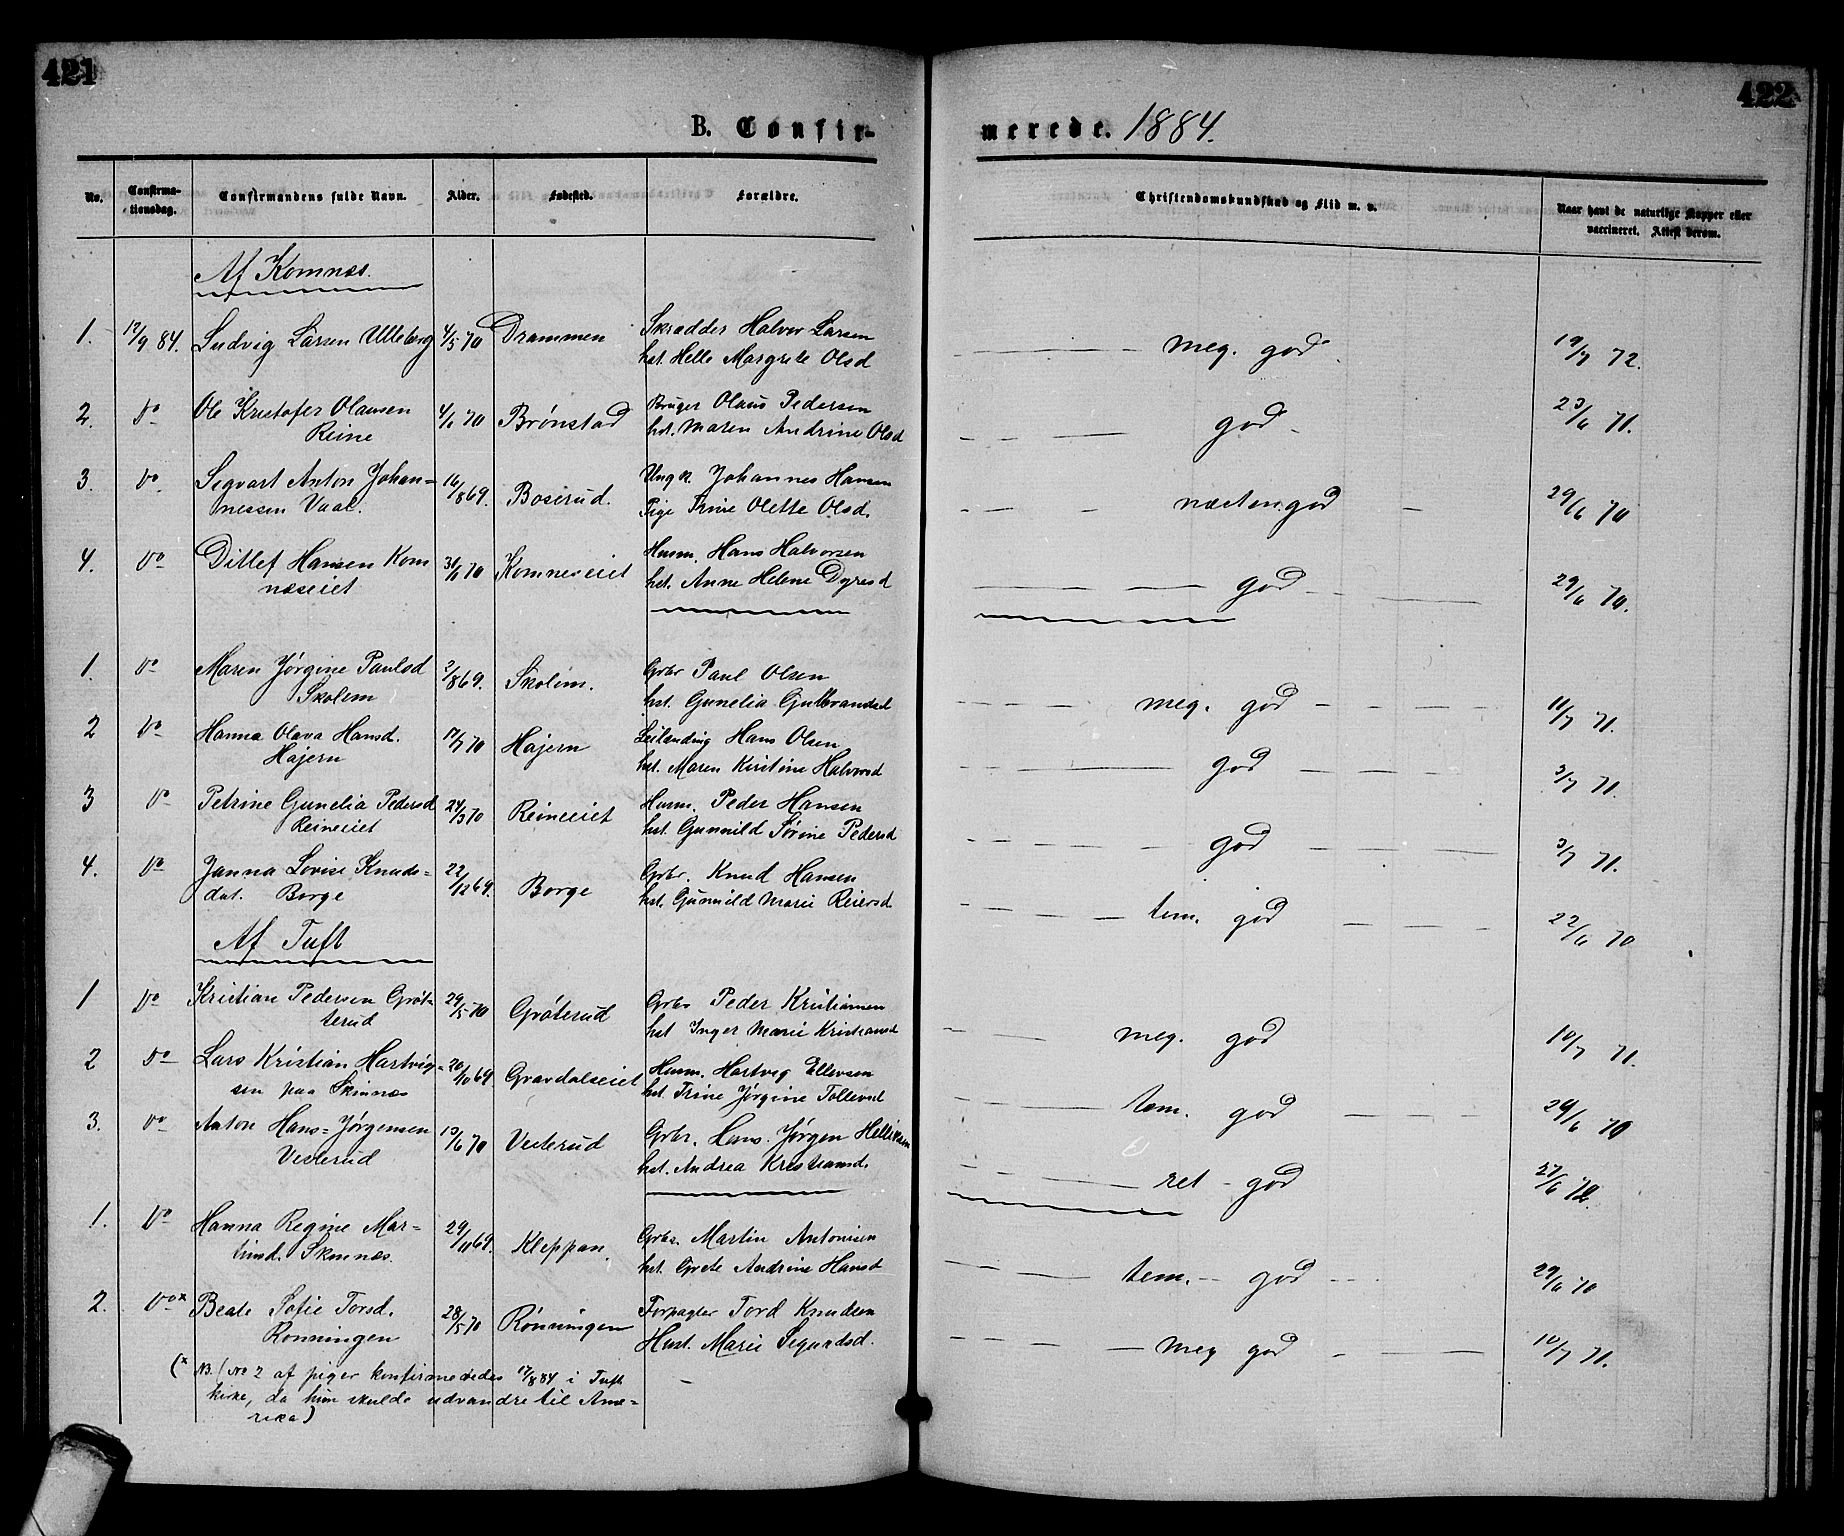 421
422
B. Confir-
merede. 1884.
No. Confirma-tionsdag. Confirmandens fulde Navn. Alder. Fødested. Forældre. Christendomskundskab og Flid m. v. Naar havt de naturlige Kopper eller vaccineret. Attest derom.
Af Komnæs.
1. 12/9 84. Ludvig Larsen Ulleberg 4/5 70 Drammen Skrædder Halvor Larsen meg. god 19/7 72.
hst. Helle Margrete Olsd
2. Do Ole Kristofer Olausen 4/1 70 Brønstad Bruger Olaus Pedersen god 23/6 71.
Reine hst. Maren Andrine Olsd
3. Do Sigvart Anton Johan= 16/8 69. Boserud. Ungk. Johannes Hansen næsten god 29/6 70
nessen Vaal. Pige Trine Olette Olsd.
4. Do Ditlef Hansen Kom 31/1 70 Komneseiet Husm. Hans Halvorsen god 29/6 70.
næseiet hst. Anne Helene Dyresd
1. Do Maren Jørgine Paulsd 2/8 69. Skolem. Grbr Paul Olsen meg. god 11/7 71.
Skolem hst. Gunelia Gulbrandsd
2 Do Hanna Olava Hansd. 17/7 70 Hajern Leilænding Hans Olsen god 3/7 71.
Hajern hst. Maren Kristine Halvorsd
3 Do Petrine Gunelia Pedersd 24/3 70 Reineeiet Husm. Peder Hansen god 3/7 71.
Reineeiet hst. Gunnild Sørine Pedersd
4. Do Janna Lovise Knuds= 22/12 69. Borge Grbr. Knud Hansen tem. god 22/6 70
dat. Borge hst. Gunnild Marie Reiersd.
Af Tuft
1 Do Kristian Pedersen Grøt= 29/5 70 Grøterud Grbr Peder Kristiansen meg. god 10/7 71.
terud hst Inger Marie Kristiansd
2 Do Lars Kristian Hartvig= 20/10 69. Gravdalseiet Husm. Hartvig Ellevsen tem. god 29/6 70
sen paa Skinnæs hst. Trine Jørgine Tollevsd
3. Do Anton Hans=Jørgensen 13/6 70 Vesterud Grbr. Hans. Jørgen Helliksen ret god 27/6 72.
Vesterud hst. Andrea Kristiansd.
1. Do Hanna Regine Mar= 29/11 69. Kleppan Grbr. Martin Antonisen tem. god 29/6 70
tinsd. Skinnæs. hst. Grete Andrine Hansd
2. Do x Beate Sofie Torsd. 28/5 70 Rønningen Forpagter Tord Knudsen meg god 10/7 71.
Rønningen Hust. Marie Sigurdsd.
(x NB. (No 2 af piger konfirmeredes 17/8 84 i Tuft
kirke, da hun skulde udvandre til Ame=
rika)